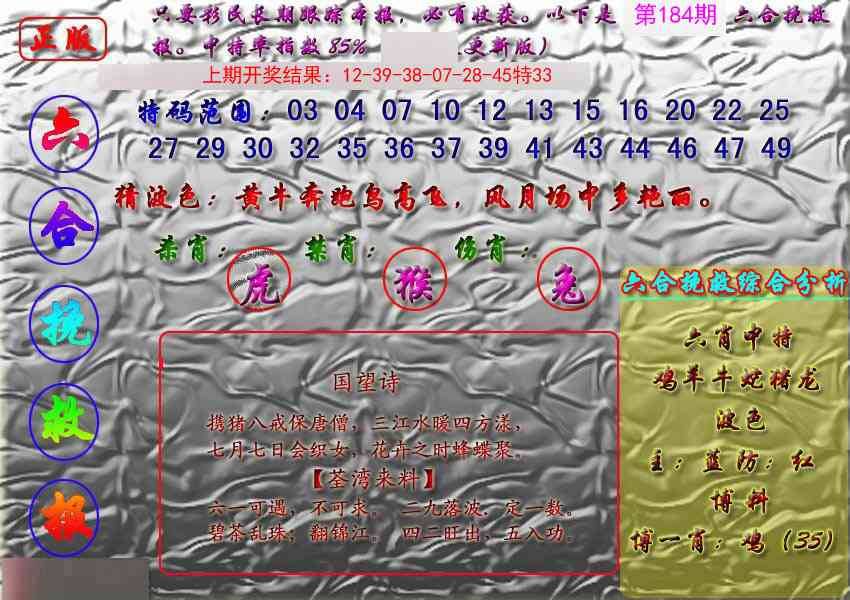 正版
只要彩民长期跟踪本报，必有收获。以下是 第184期 六合挽救
报。中特率指数85% .更新版）
上期开奖结果：12-39-38-07-28-45特33
特码范围：03 04 07 10 12 13 15 16 20 22 25
27 29 30 32 35 36 37 39 41 43 44 46 47 49
猜波色：黄牛奔跑鸟高飞，风月场中多艳丽。
杀肖： 禁肖： 伤肖：
虎 猴 兔
六
合
挽
救
报
国望诗
携猪八戒保唐僧，三江水暖四方漾，
七月七日会织女，花卉之时蜂蝶聚。
【荃湾来料】
六一可遇，不可求， 二九落波．定一数。
碧茶乱珠；翻锦江。 四二旺出，五入功。
六合挽救综合分析
六肖中特
鸡羊牛蛇猪龙
波色
主：蓝防：红
博料
博一肖：鸡（35）